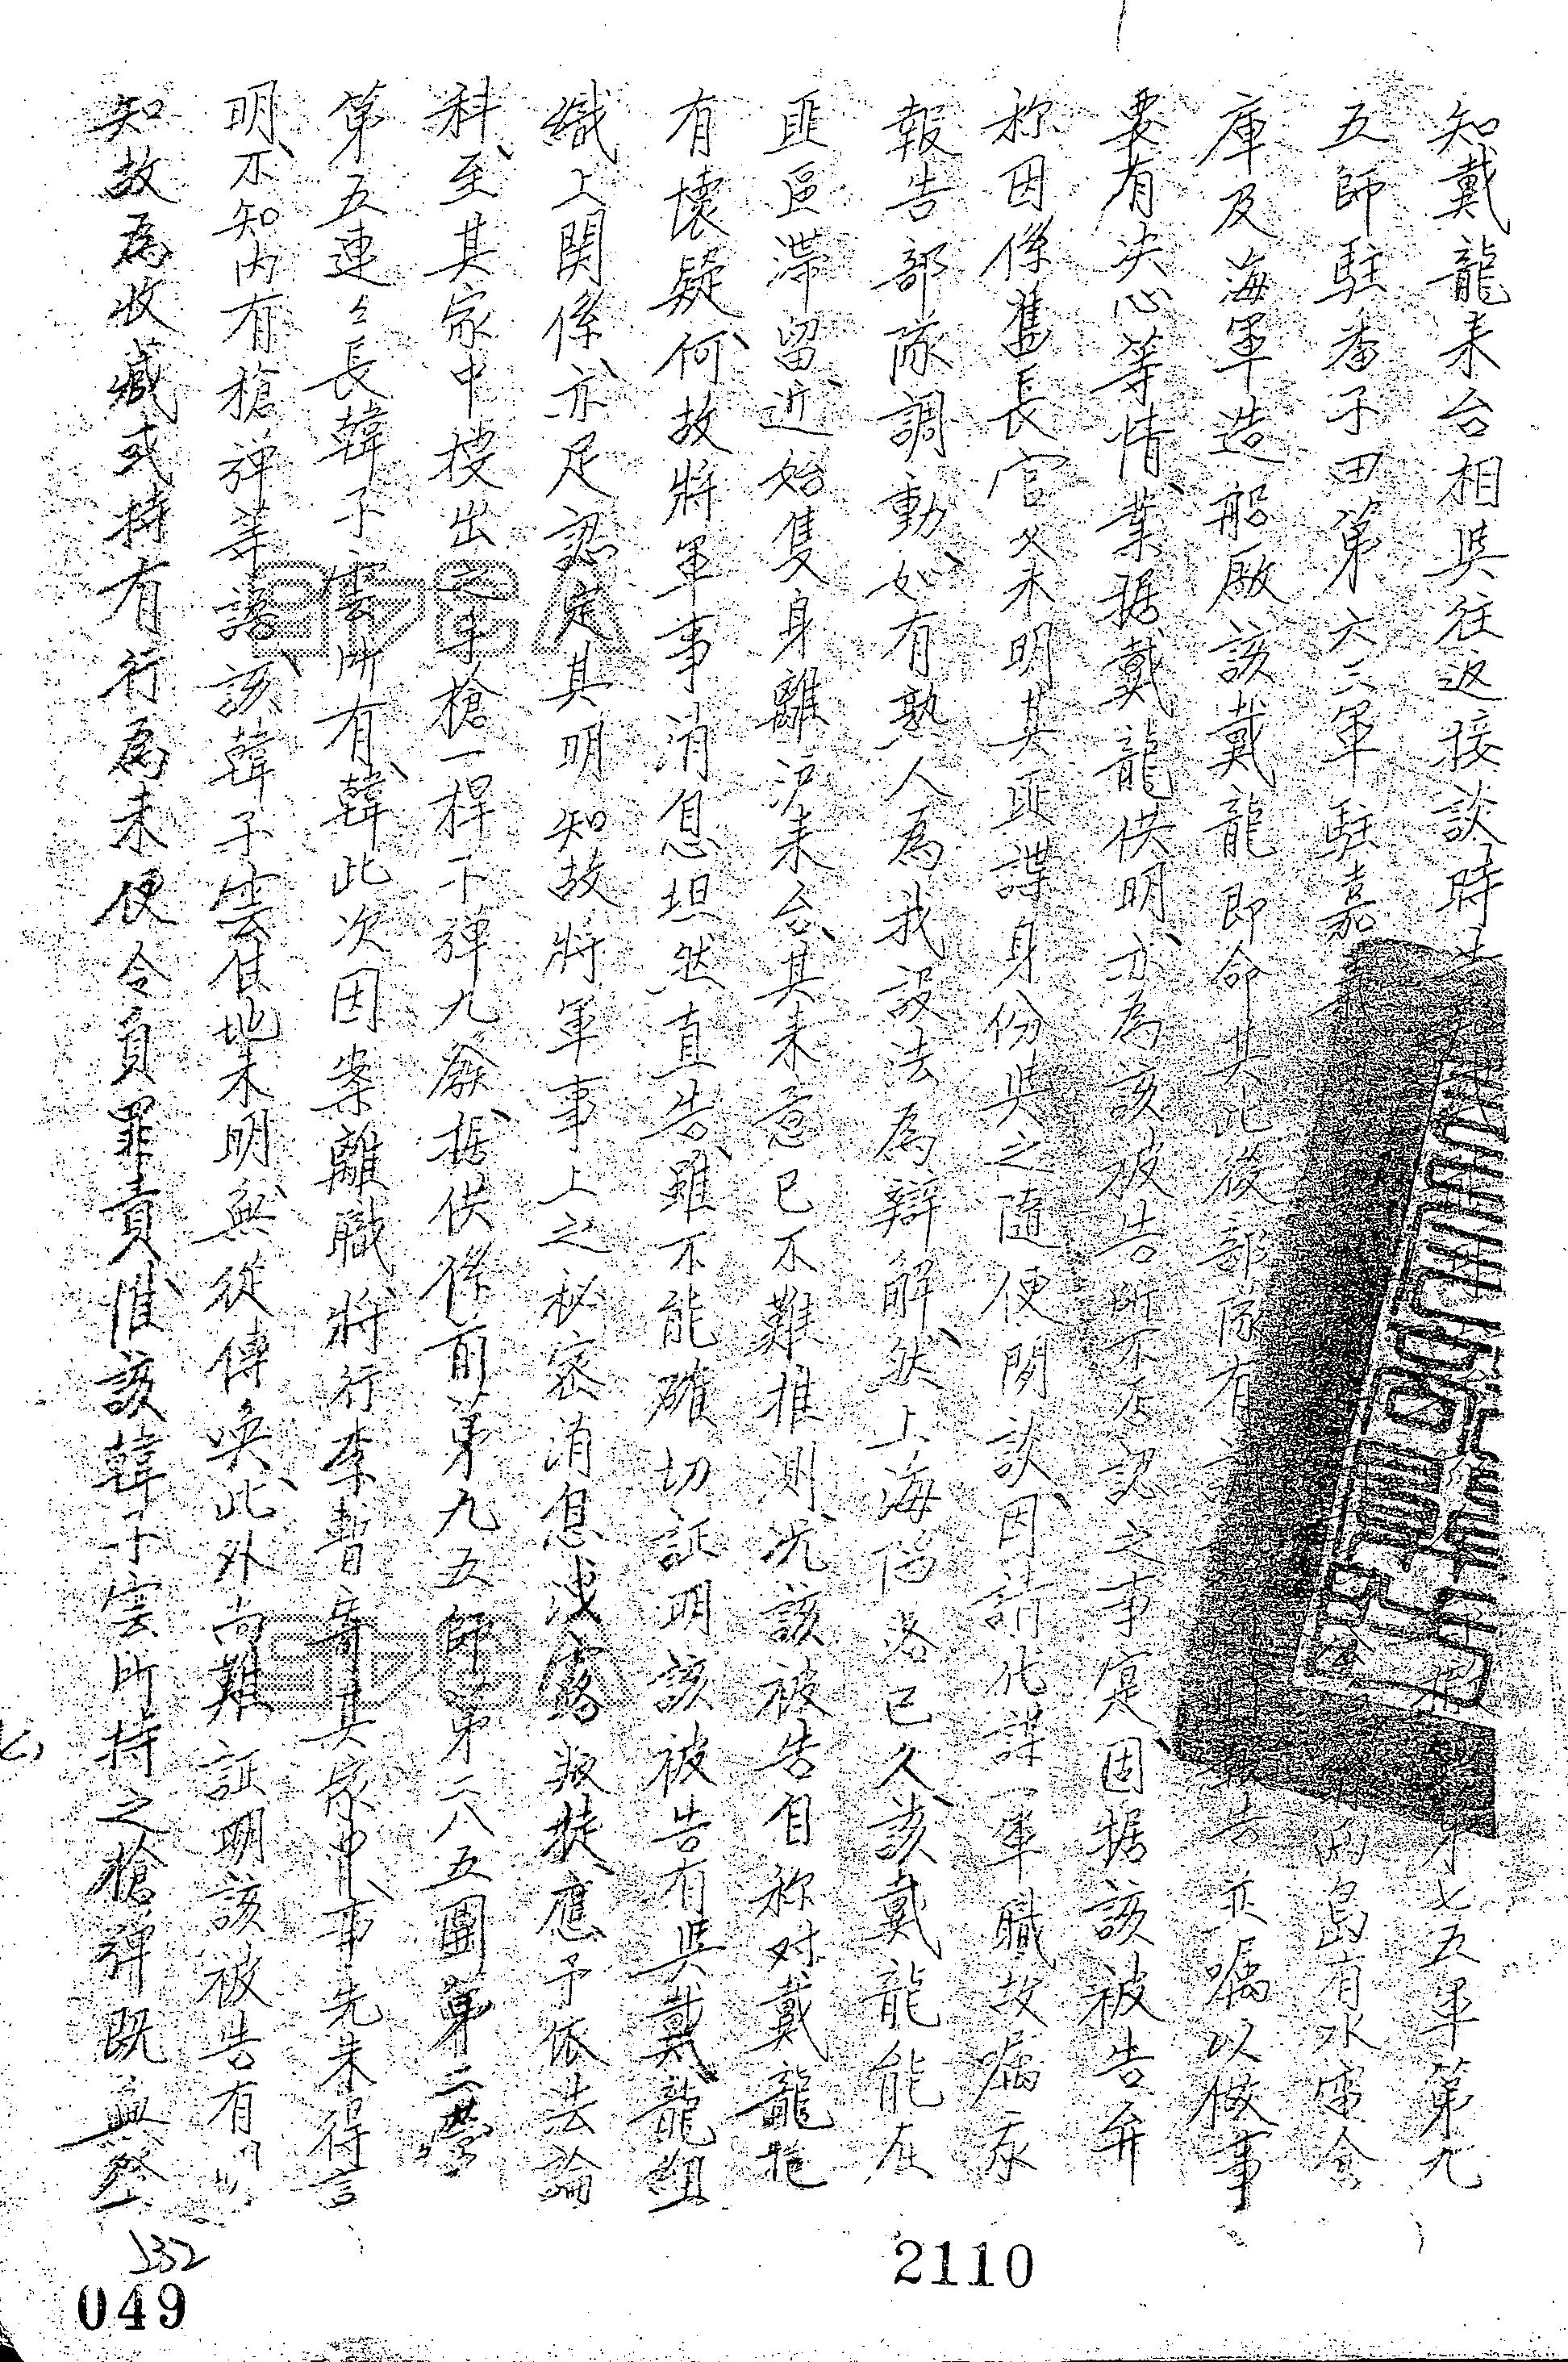 知戴龍来台相與往返接談時告第七五軍第九
五師駐番子田第六三軍駐嘉義島有水雷倉
庫及海軍造船廠該戴龍即命其此後部隊有報告並囑以做事
要有决心等情業据戴龍供明亦為該被告所不否認之事寔固据該被告弁
称因係舊長官父未明其匪諜身份與之隨便閒談因請代謀一軍職故囑汞
報告部隊調動如有熟人為我設法為辯解然上海陷落已久該戴龍能在
匪區滞留近始隻身離沪来台其来意已不難推測况該被告自称对戴龍抱
有懷疑何故將軍事消息坦然直告雖不能確切証明該被告有與戴龍組
織上関係亦足認定其明知故將軍事上之秘密消息洩露叛徒應予依法論
科至其家中搜出之手槍一桿子彈九發据供係前第九五師第二八五團第二營
第五連々長韓子雲所有韓此次因案離職將行李暫寄其家中事先未得言
明不知内有槍弹等語該韓子雲住地未明無從傳喚此外尚難証明該被告有明
知故為收藏或持有行為未便令負罪責惟該韓子雲所持之槍弹既無發
七、
132
049
2110